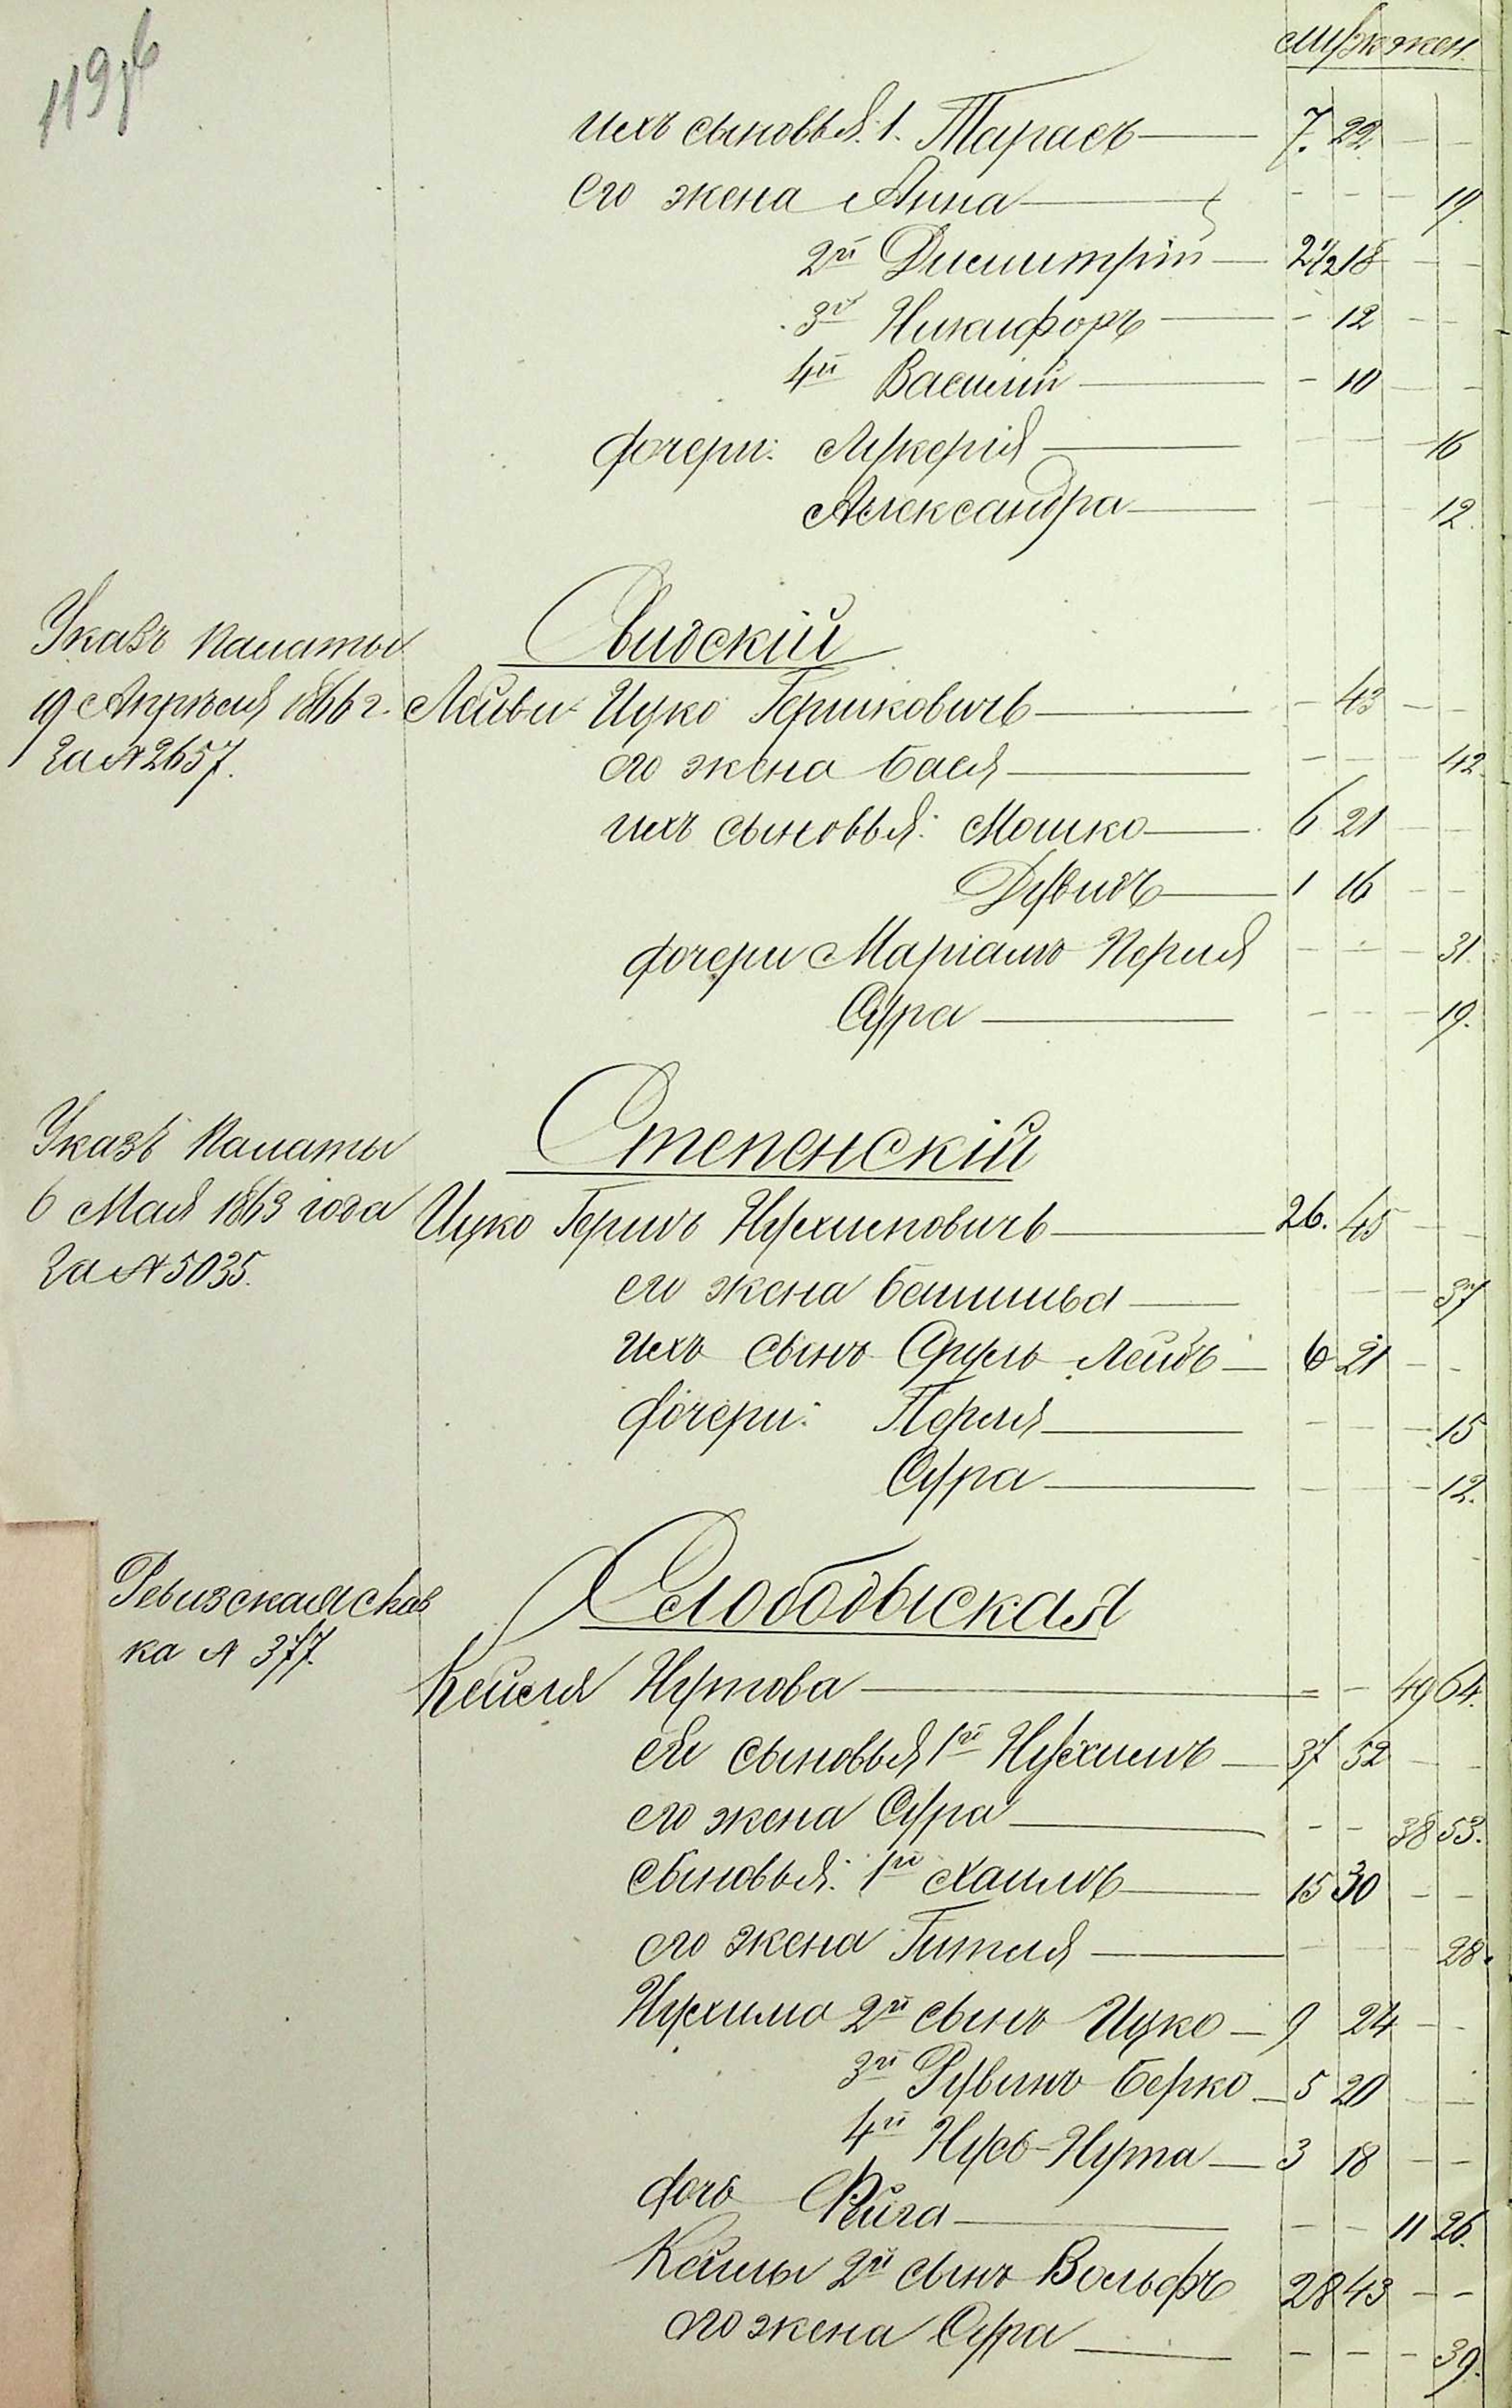 119об
муж жен.
ихъ сыновья: 1. Тарасъ — 7. 22. — —
его жена Анна — — — — 19.
2й Димитрій — 2 1/2 18 — —
3й Никифоръ — — 12 — —
4й Василій — — 10 — —
дочери: Лукерія — — — — 16
Александра — — — 12.
Свидскій
Указъ Палаты
19 Апрѣля 1866 г. Лейви Ицко Гершковичъ — — 43 — —
За № 2657. его жена Бася — — — — 42.
ихъ сыновья: Мошко — 6 21 — —
Дувидъ — 1 16 — —
дочери Маріамъ Перля — — — 31.
Сура — — — — 19.
Степенскій
Указъ Палаты
6 Мая 1863 года Ицко Гершъ Нухимовичъ — 26. 45 — —
За № 5035. его жена Башива — — — — 37
ихъ сынъ Сруль Лейбъ — 6 21 — —
дочери: Перля — — — — 15
Сура — — — — 12.
Слободыская
Ревизская сказ
ка № 377.
Кейля Нутова — — — 49 64.
ея сыновья 1й Нухимъ — 37 52 — —
его жена Сура — — — 38 53.
сыновья: 1й Хаимъ — 15 30 — —
его жена Гитля — — — — 28.
Нухима 2й сынъ Ицко — 9 24 — —
3й Рувинъ Берко — 5 20 — —
4й Нусъ-Нута — 3 18 — —
дочь Фейга — — — 11 26.
Кейлы 2й сынъ Вольфъ 28 43 — —
его жена Сура — — — — 39.